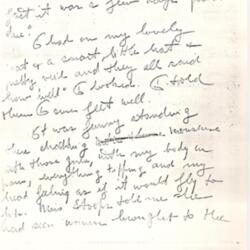 fact it was a few days past
due. I had on my lovely
coat & a smart little hat &
veil and they all said
how "well" I looked. I told
them I never felt well.
It was funny standing
there chatting
with those girls, with my body in
everything tipping and my
head feeling as if it would fly to
bits. Miss told me she
had seen women brought to the